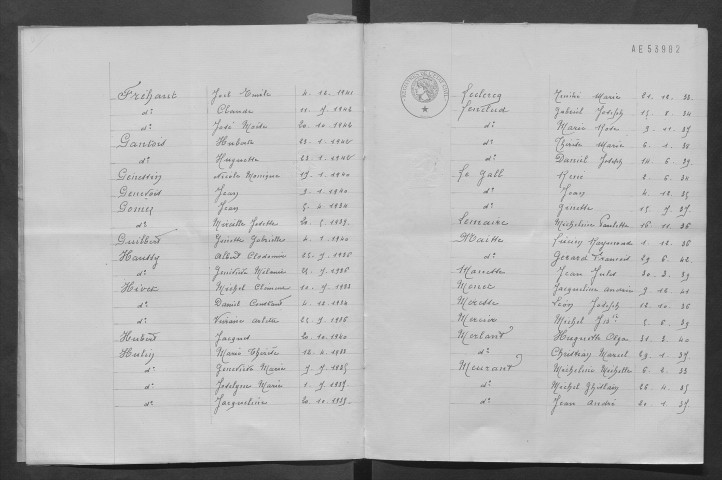 Fréhaut José Emile 4. 12. 1941
d° Claude 11. 9. 1946
d° José Moïse 20. 10. 1946
Gantois Hubert 23. 1. 1940
d° Huguette 23. 1. 1940
Nicole Monique 19. 1. 1940
Genevois Jean 9. 1. 1940
Gomez Jean 5. 4. 1934
d° Mireille Josette 20. 5. 1939
Guilbert Ginette Gabrielle 4. 1. 1940
Albert Clodomir 22. 5. 1936
d° Geneviève 21. 9. 1936
Hivet Michel Clément 10. 9. 1933
d° Daniel Constant 4. 12. 1934
d° Viviane Arlette 25. 9. 1936
Hubert Jacques 20. 10. 1940
Hulin Marie Thérèse 12. 2. 1933
d° Geneviève Marie 9. 9. 1935
d° Jocelyne Marie 1. 9. 1937
d° Jacqueline 20. 10. 1939
AE53982
Leclercq Marie 21. 12. 33
Gabriel Joseph 15. 8. 34
d° Marie Rose 9. 11. 37
d° Thérèse Marie 6. 1. 38
d° Daniel Joseph 14. 6. 39
Le Gall Rémi 2. 6. 34
d° Jean 4. 12. 35
d° Ginette 15. 9. 37
Lemaire Micheline Paulette 16. 11. 36
Lucien Raymond 1. 12. 36
d° Gérard Francis 29. 6. 42
Jean Jules 30. 3. 39
Jacqueline 9. 12. 41
Léon Joseph 12. 10. 36
Mercier Michel 5. 6. 39
Morland Huguette Olga 31. 3. 40
d° Christian Marcel 29. 1. 37
Meurant Micheline Michelle 6. 2. 33
d° Michel Ghislain 26. 4. 35
d° Jean André 20. 1. 37